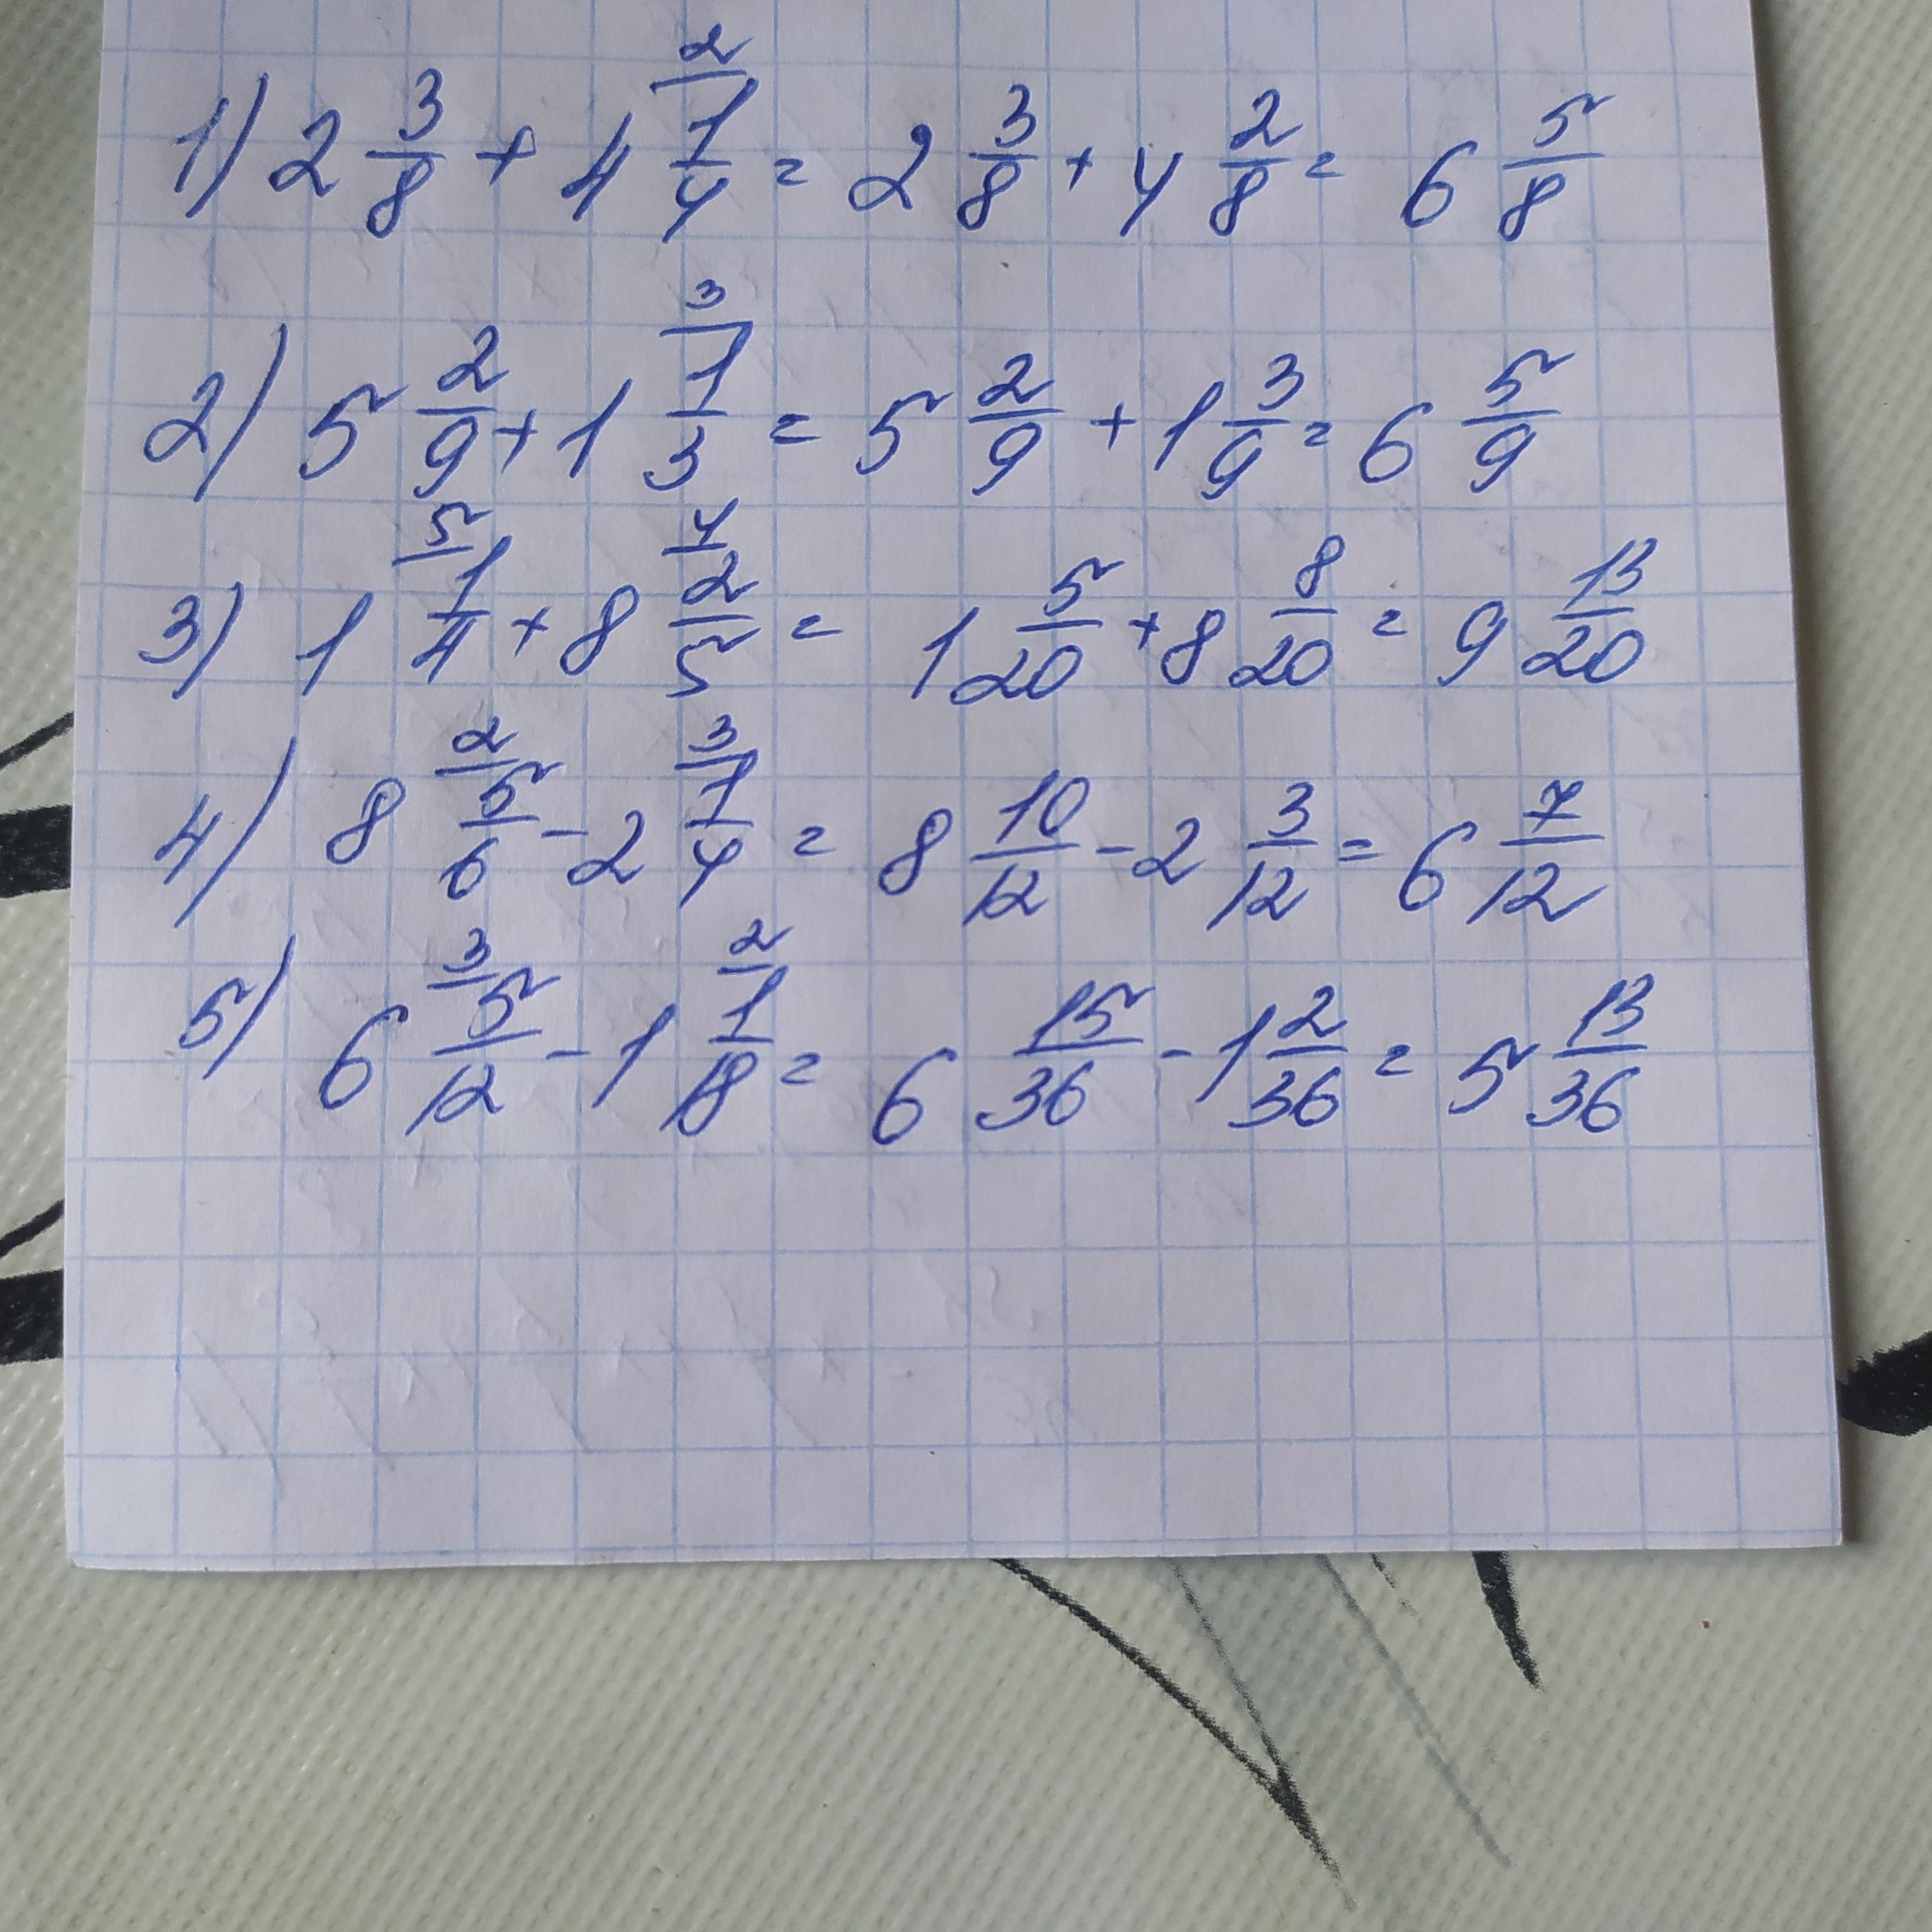 1) 2 3/8 + 4 1/4 ^2/ = 2 3/8 + 4 2/8 = 6 5/8
2) 5 2/9 + 1 1/3 ^3/ = 5 2/9 + 1 3/9 = 6 5/9
3) 1 1/4 ^5/ + 8 2/5 ^4/ = 1 5/20 + 8 8/20 = 9 13/20
4) 8 5/6 ^2/ - 2 1/4 ^3/ = 8 10/12 - 2 3/12 = 6 7/12
5) 6 5/12 ^3/ - 1 1/18 ^2/ = 6 15/36 - 1 2/36 = 5 13/36